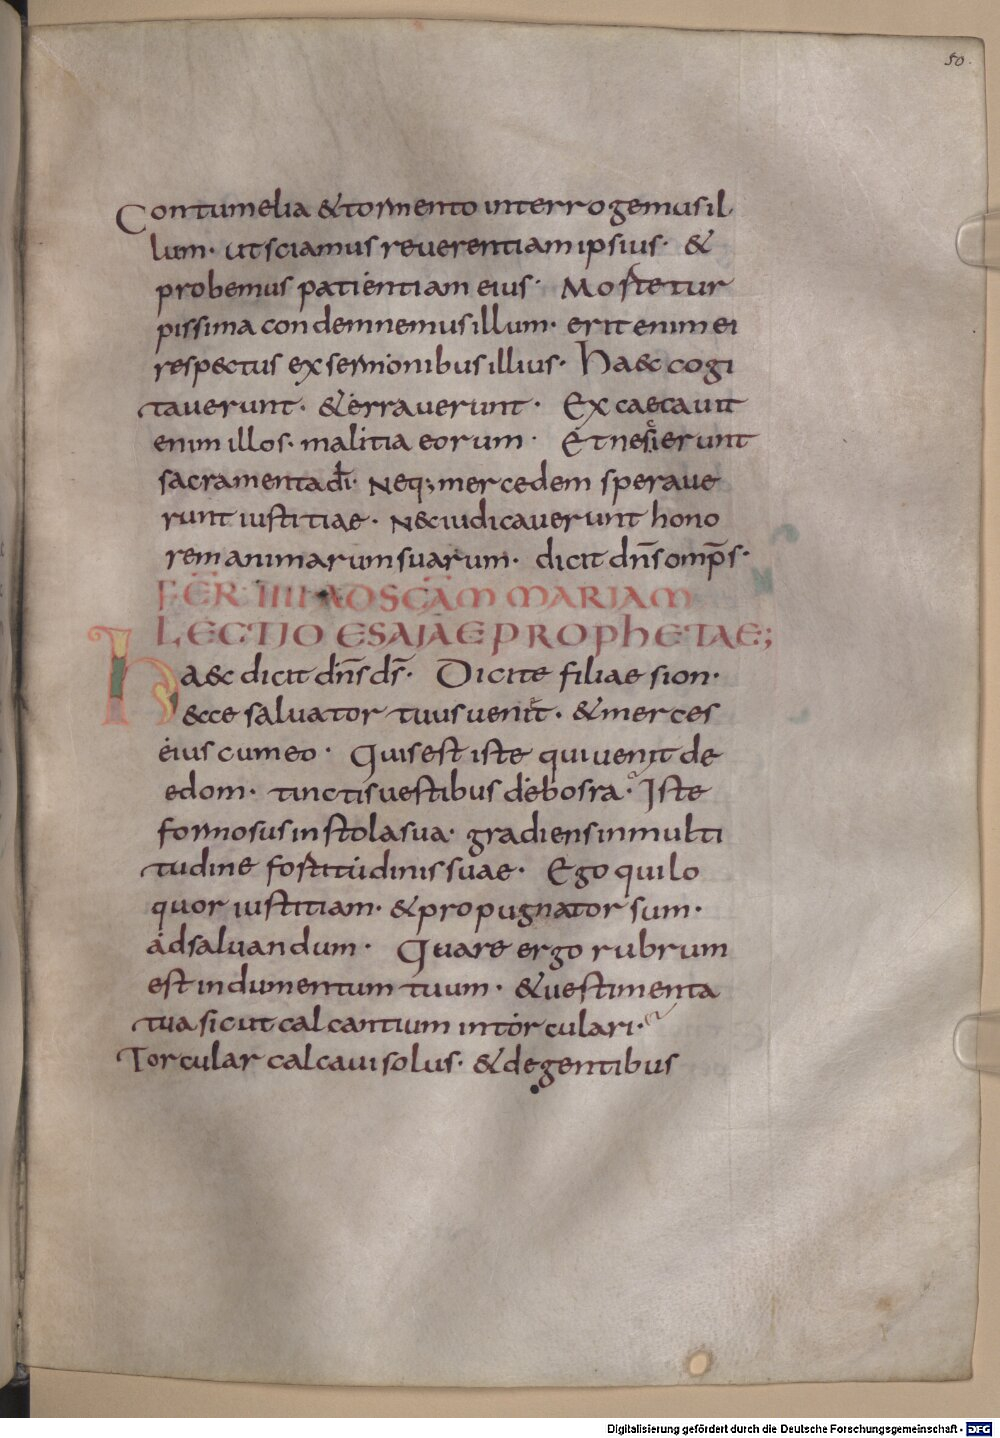 50.
Contumelia & tormento interrogemus il
lum· ut sciamus reverentiam ipsius· &
probemus patientiam eius· Morte tur
pissima condemnemus illum· erit enim ei
respectus ex sermonibus illius· Haec cogi
taverunt· & erraverunt· Excaecavit
enim illos· malitia eorum· Et nescierunt
sacramenta dī· Neq; mercedem sperave
runt iustitiae· Nec iudicaverunt hono
rem animarum suarum· dicit dn̄s omp̄s·
FER̄ IIII AD SCĀM MARIAM
LECTIO ESAIAE PROPHETAE;
Haec dicit dn̄s ds̄· Dicite filiae sion·
Ecce salvator tuus venit· & merces
eius cum eo· Quis est iste qui venit de
edom· tinctis vestibus de bosra· Iste
formosus in stola sua· gradiens in multi
tudine fortitudinis suae· Ego qui lo
quor iustitiam· & propugnator sum·
ad salvandum· Quare ergo rubrum
est indumentum tuum· & vestimenta
tua sicut calcantium in torculari·
Torcular calcavi solus· & de gentibus
Digitalisierung gefördert durch die Deutsche Forschungsgemeinschaft - DFG